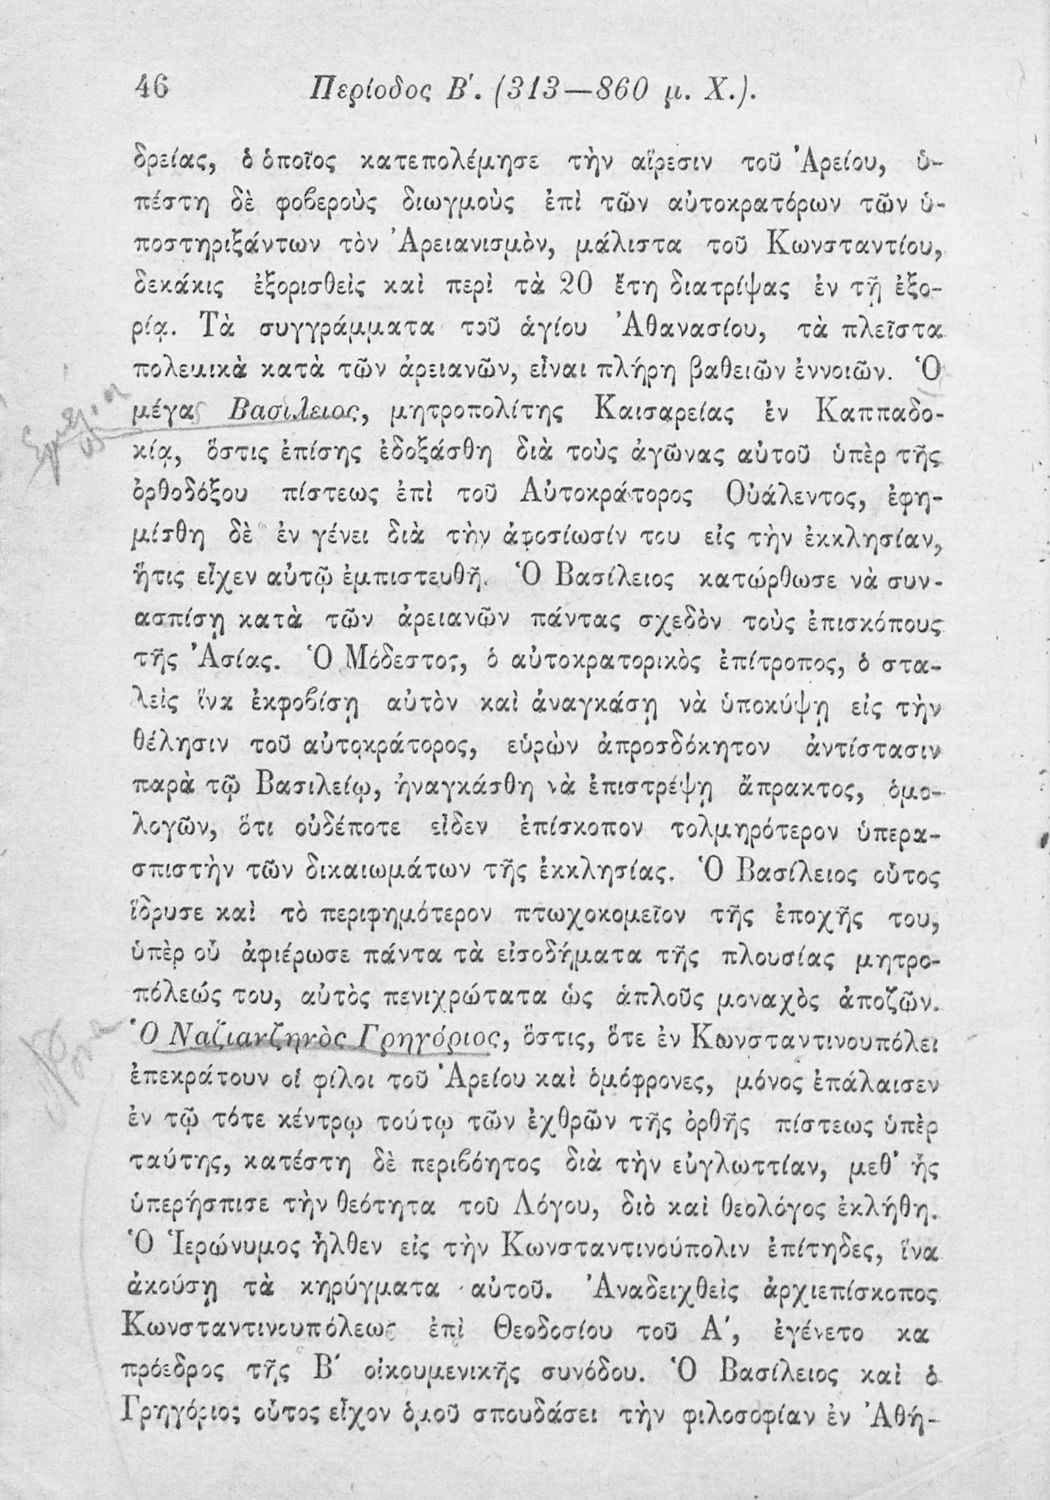 46 Περίοδος Β΄. (313—860 μ. Χ.).
δρείας, ὁ ὁποῖος κατεπολέμησε τὴν αἵρεσιν τοῦ Ἀρείου, ὑ-
πέστη δὲ φοβεροὺς διωγμοὺς ἐπὶ τῶν αὐτοκρατόρων τῶν ὑ-
ποστηριξάντων τὸν Ἀρειανισμὸν, μάλιστα τοῦ Κωνσταντίου,
δεκάκις ἐξορισθεὶς καὶ περὶ τὰ 20 ἔτη διατρίψας ἐν τῇ ἐξο-
ρίᾳ. Τὰ συγγράμματα τοῦ ἁγίου Ἀθανασίου, τὰ πλεῖστα
πολεμικὰ κατὰ τῶν ἀρειανῶν, εἶναι πλήρη βαθειῶν ἐννοιῶν. Ὁ
μέγας Βασίλειος, μητροπολίτης Καισαρείας ἐν Καππαδο-
κίᾳ, ὅστις ἐπίσης ἐδοξάσθη διὰ τοὺς ἀγῶνας αὐτοῦ ὑπὲρ τῆς
ὀρθοδόξου πίστεως ἐπὶ τοῦ Αὐτοκράτορος Οὐάλεντος, ἐφη-
μίσθη δὲ ἐν γένει διὰ τὴν ἀφοσίωσίν του εἰς τὴν ἐκκλησίαν,
ἥτις εἶχεν αὐτῷ ἐμπιστευθῆ. Ὁ Βασίλειος κατώρθωσε νὰ συν-
ασπίσῃ κατὰ τῶν ἀρειανῶν πάντας σχεδὸν τοὺς ἐπισκόπους
τῆς Ἀσίας. Ὁ Μόδεστος, ὁ αὐτοκρατορικὸς ἐπίτροπος, ὁ στα-
λεὶς ἵνα ἐκφοβίσῃ αὐτὸν καὶ ἀναγκάσῃ νὰ ὑποκύψῃ εἰς τὴν
θέλησιν τοῦ αὐτοκράτορος, εὑρὼν ἀπροσδόκητον ἀντίστασιν
παρὰ τῷ Βασιλείῳ, ἠναγκάσθη νὰ ἐπιστρέψῃ ἄπρακτος, ὁμο-
λογῶν, ὅτι οὐδέποτε εἶδεν ἐπίσκοπον τολμηρότερον ὑπερα-
σπιστὴν τῶν δικαιωμάτων τῆς ἐκκλησίας. Ὁ Βασίλειος οὗτος
ἵδρυσε καὶ τὸ περιφημότερον πτωχοκομεῖον τῆς ἐποχῆς του,
ὑπὲρ οὗ ἀφιέρωσε πάντα τὰ εἰσοδήματα τῆς πλουσίας μητρο-
πόλεώς του, αὐτὸς πενιχρώτατα ὡς ἁπλοῦς μοναχὸς ἀποζῶν.
Ὁ Ναζιανζηνὸς Γρηγόριος, ὅστις, ὅτε ἐν Κωνσταντινουπόλει
ἐπεκράτουν οἱ φίλοι τοῦ Ἀρείου καὶ ὁμόφρονες, μόνος ἐπάλαισεν
ἐν τῷ τότε κέντρῳ τούτῳ τῶν ἐχθρῶν τῆς ὀρθῆς πίστεως ὑπὲρ
ταύτης, κατέστη δὲ περιβόητος διὰ τὴν εὐγλωττίαν, μεθ' ἧς
ὑπερήσπισε τὴν θεότητα τοῦ Λόγου, διὸ καὶ θεολόγος ἐκλήθη.
Ὁ Ἱερώνυμος ἦλθεν εἰς τὴν Κωνσταντινούπολιν ἐπίτηδες, ἵνα
ἀκούσῃ τὰ κηρύγματα αὐτοῦ. Ἀναδειχθεὶς ἀρχιεπίσκοπος
Κωνσταντινουπόλεως ἐπὶ Θεοδοσίου τοῦ Α΄, ἐγένετο κα
πρόεδρος τῆς Β΄ οἰκουμενικῆς συνόδου. Ὁ Βασίλειος καὶ ὁ
Γρηγόριος οὗτος εἶχον ὁμοῦ σπουδάσει τὴν φιλοσοφίαν ἐν Ἀθή-